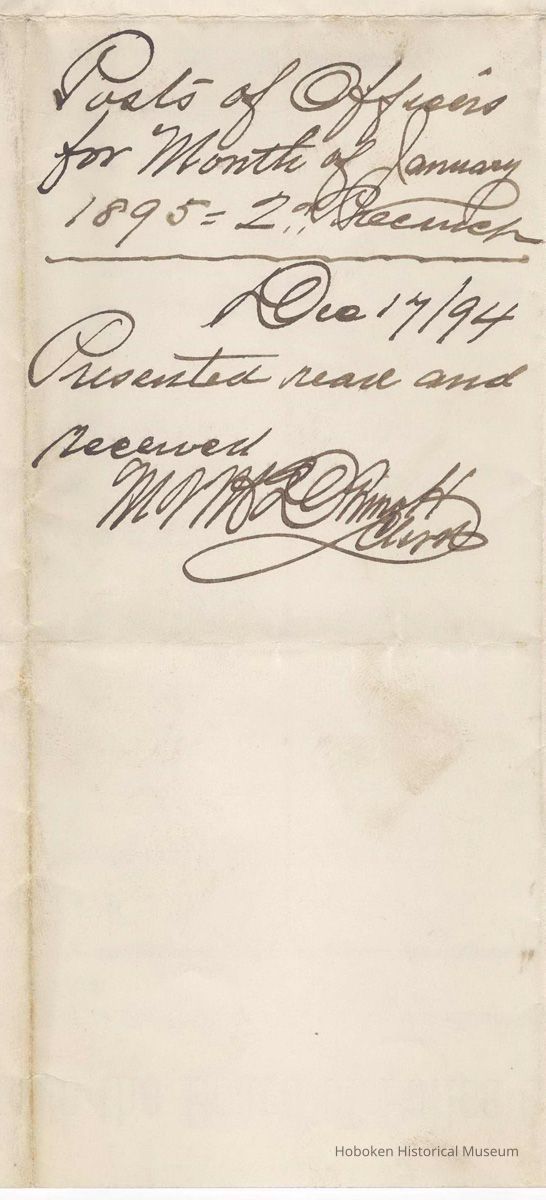 Posts of Officers
for Month of January
1895 = 2nd Precinct
Dec 17/94
Presented read and
received
Clerk
Hoboken Historical Museum